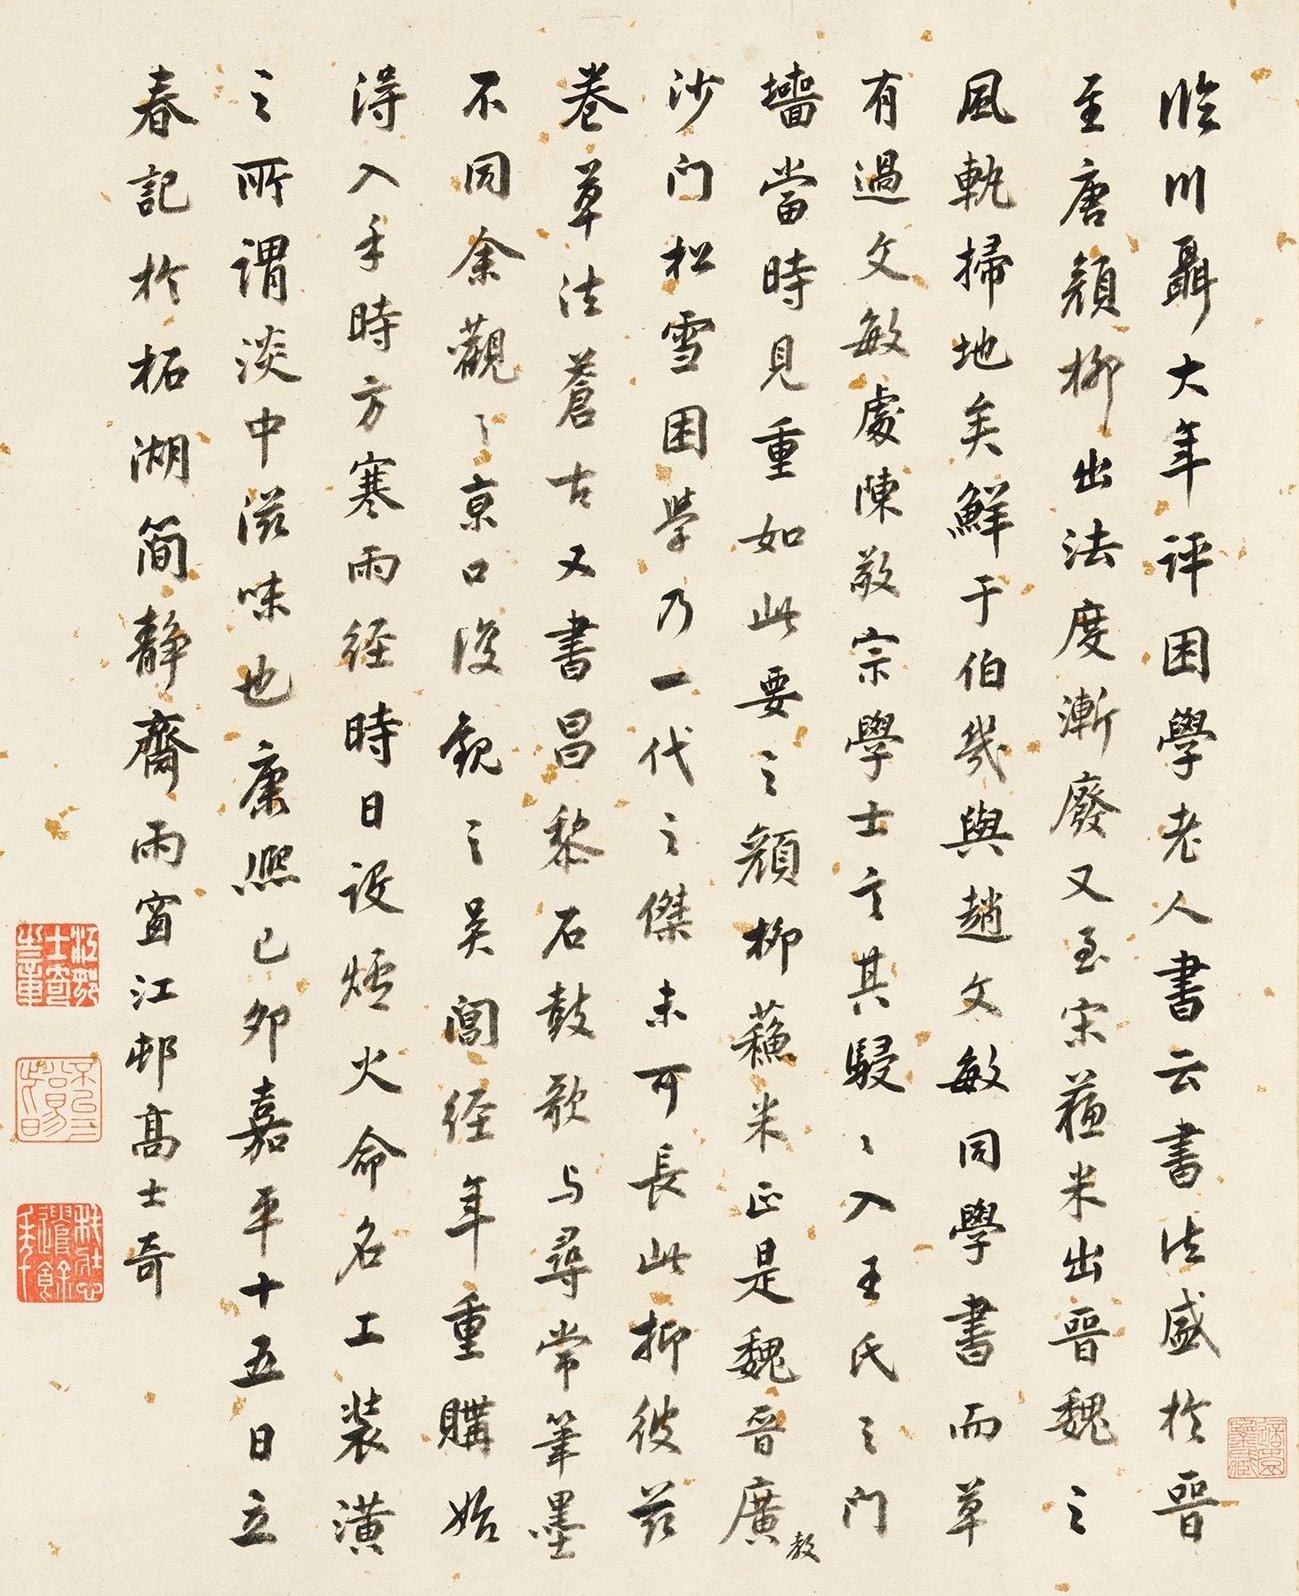 臨川聶大年評困學老人書云書法盛於晉
至唐顏柳出法度漸廢又至宋蘓米出晉魏之
風軌掃地矣鮮于伯幾與趙文敏同學書而草
有過文敏處陳敬宗學士言其駸〻入王氏之门
墻當時見重如此要之顏柳蘓米正是魏晉廣
教
沙门松雪困学乃一代之傑未可長此抑彼兹
卷草法蒼古又書昌黎石鼓歌与尋常筆墨
不同余觀之京口後観之吴閶经年重購始
淂入手時方寒雨经時日设爐火命名工装潢
之所謂淡中滋味也康熙己卯嘉平十五日立
春記於柘湖简静齋雨窗江邨高士奇